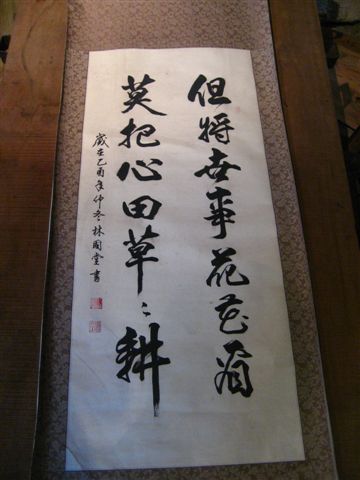 但將世事花花看
莫把心田草〻耕
歲在乙酉年仲冬林國堂書